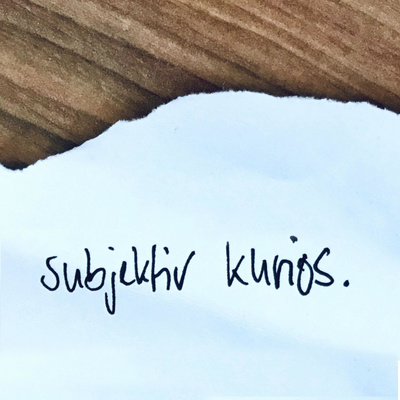 subjektiv kurios.